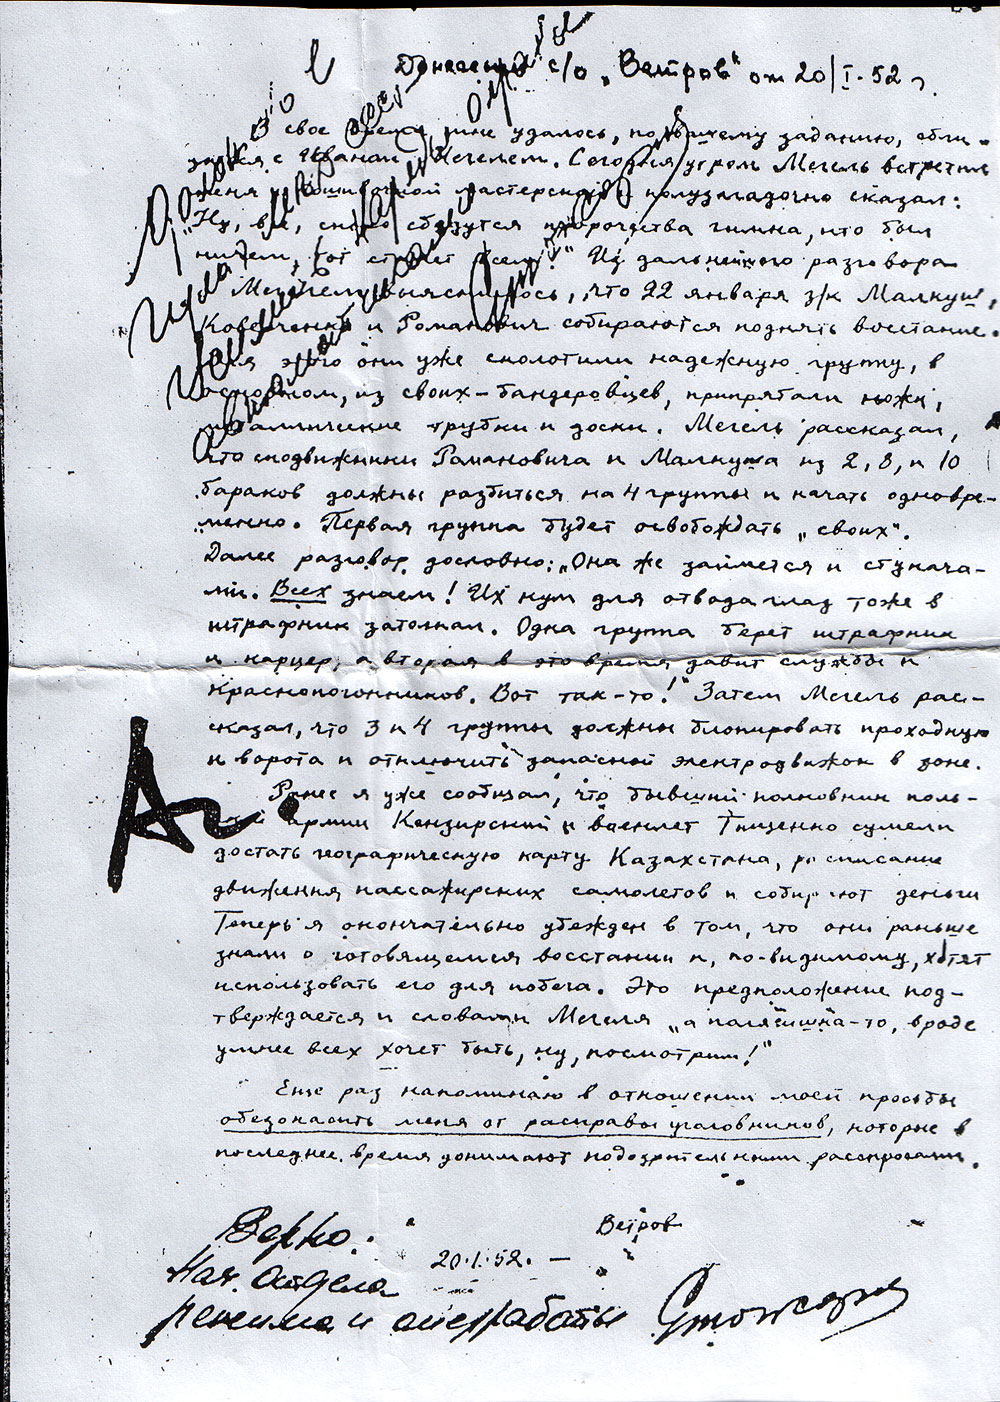 Донесение с/о „Ветров" от 20/I-52 г.
В свое время мне удалось, по Вашему заданию, сбли-
зиться с Иваном Мегелем. Сегодня утром Мегель встретил
меня в пошивочной мастерской и полузагадочно сказал:
„Ну, все, скоро сбудутся пророчества гимна, кто был
ничем, тот станет всем!" Из дальнейшего разговора
с Мегелем выяснилось, что 22 января з/к Малкуш,
Коверченко и Романович собираются поднять восстание.
Для этого они уже сколотили надежную группу, в
основном, из своих-бандеровцев, припрятали ножи,
металлические трубки и доски. Мегель рассказал,
что сподвижники Романовича и Малкуша из 2, 8, и 10
бараков должны разбиться на 4 группы и начать одновре-
менно. Первая группа будет освобождать „своих".
Далее разговор дословно: „Она же займется и стукача-
ми. Всех знаем! Их кум для отвода глаз тоже в
штрафник затолкал. Одна группа берет штрафник
и карцер, а вторая в это время давит службы и
краснопогонников. Вот так-то!" Затем Мегель рас-
сказал, что 3 и 4 группы должны блокировать проходную
и ворота и отключить запасной электродвижок в зоне.
Ранее я уже сообщал, что бывший полковник поль-
ской армии Кензирский и военлет Тищенко сумели
достать географическую карту Казахстана, расписание
движения пассажирских самолетов и собирают деньги
Теперь я окончательно убежден в том, что они раньше
знали о готовящемся восстании и, по-видимому, хотят
использовать его для побега. Это предположение под-
тверждается и словами Мегеля „а полячишка-то, вроде
умнее всех хочет быть, ну, посмотрим!"
Еще раз напоминаю в отношении моей просьбы
обезопасить меня от расправы уголовников, которые в
последнее время донимают подозрительными расспросами.
Ветров
20.1.52. —
Верно:
Нач. Отдела
режима и оперработы Стожаров